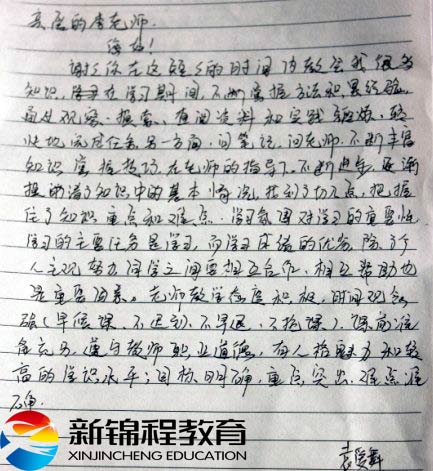 真尽的李老师.
您好!
谢谢你在这短短的时间内教会我很多
知识,在学习期间,不断掌握方法积累经验,
通过观察、摸索、查阅资料和实践锻炼,较
快地完成任务.另一方面,问笔记,问老师,不断丰富
知识掌握技巧.在老师的指导下,不断进步,逐渐
摸的清了知识中的基本情况,找到了切入点,把握
住了知识重点和难点.学习氛围对学习的重要性.
学习的主要任务是学习,而学习成绩的优劣,除了个
人主观努力同学之间要相互合作,相互帮助也
是重要因素.老师教学态度积极,时间观念
强(早候课、不迟到、不早退、不拖课),课前准
备充分,遵守教师职业道德,有人格魅力和较
高的学识水平;目标明确,重点突出,难点准
确.
新锦程教育
XINJINCHENG EDUCATION